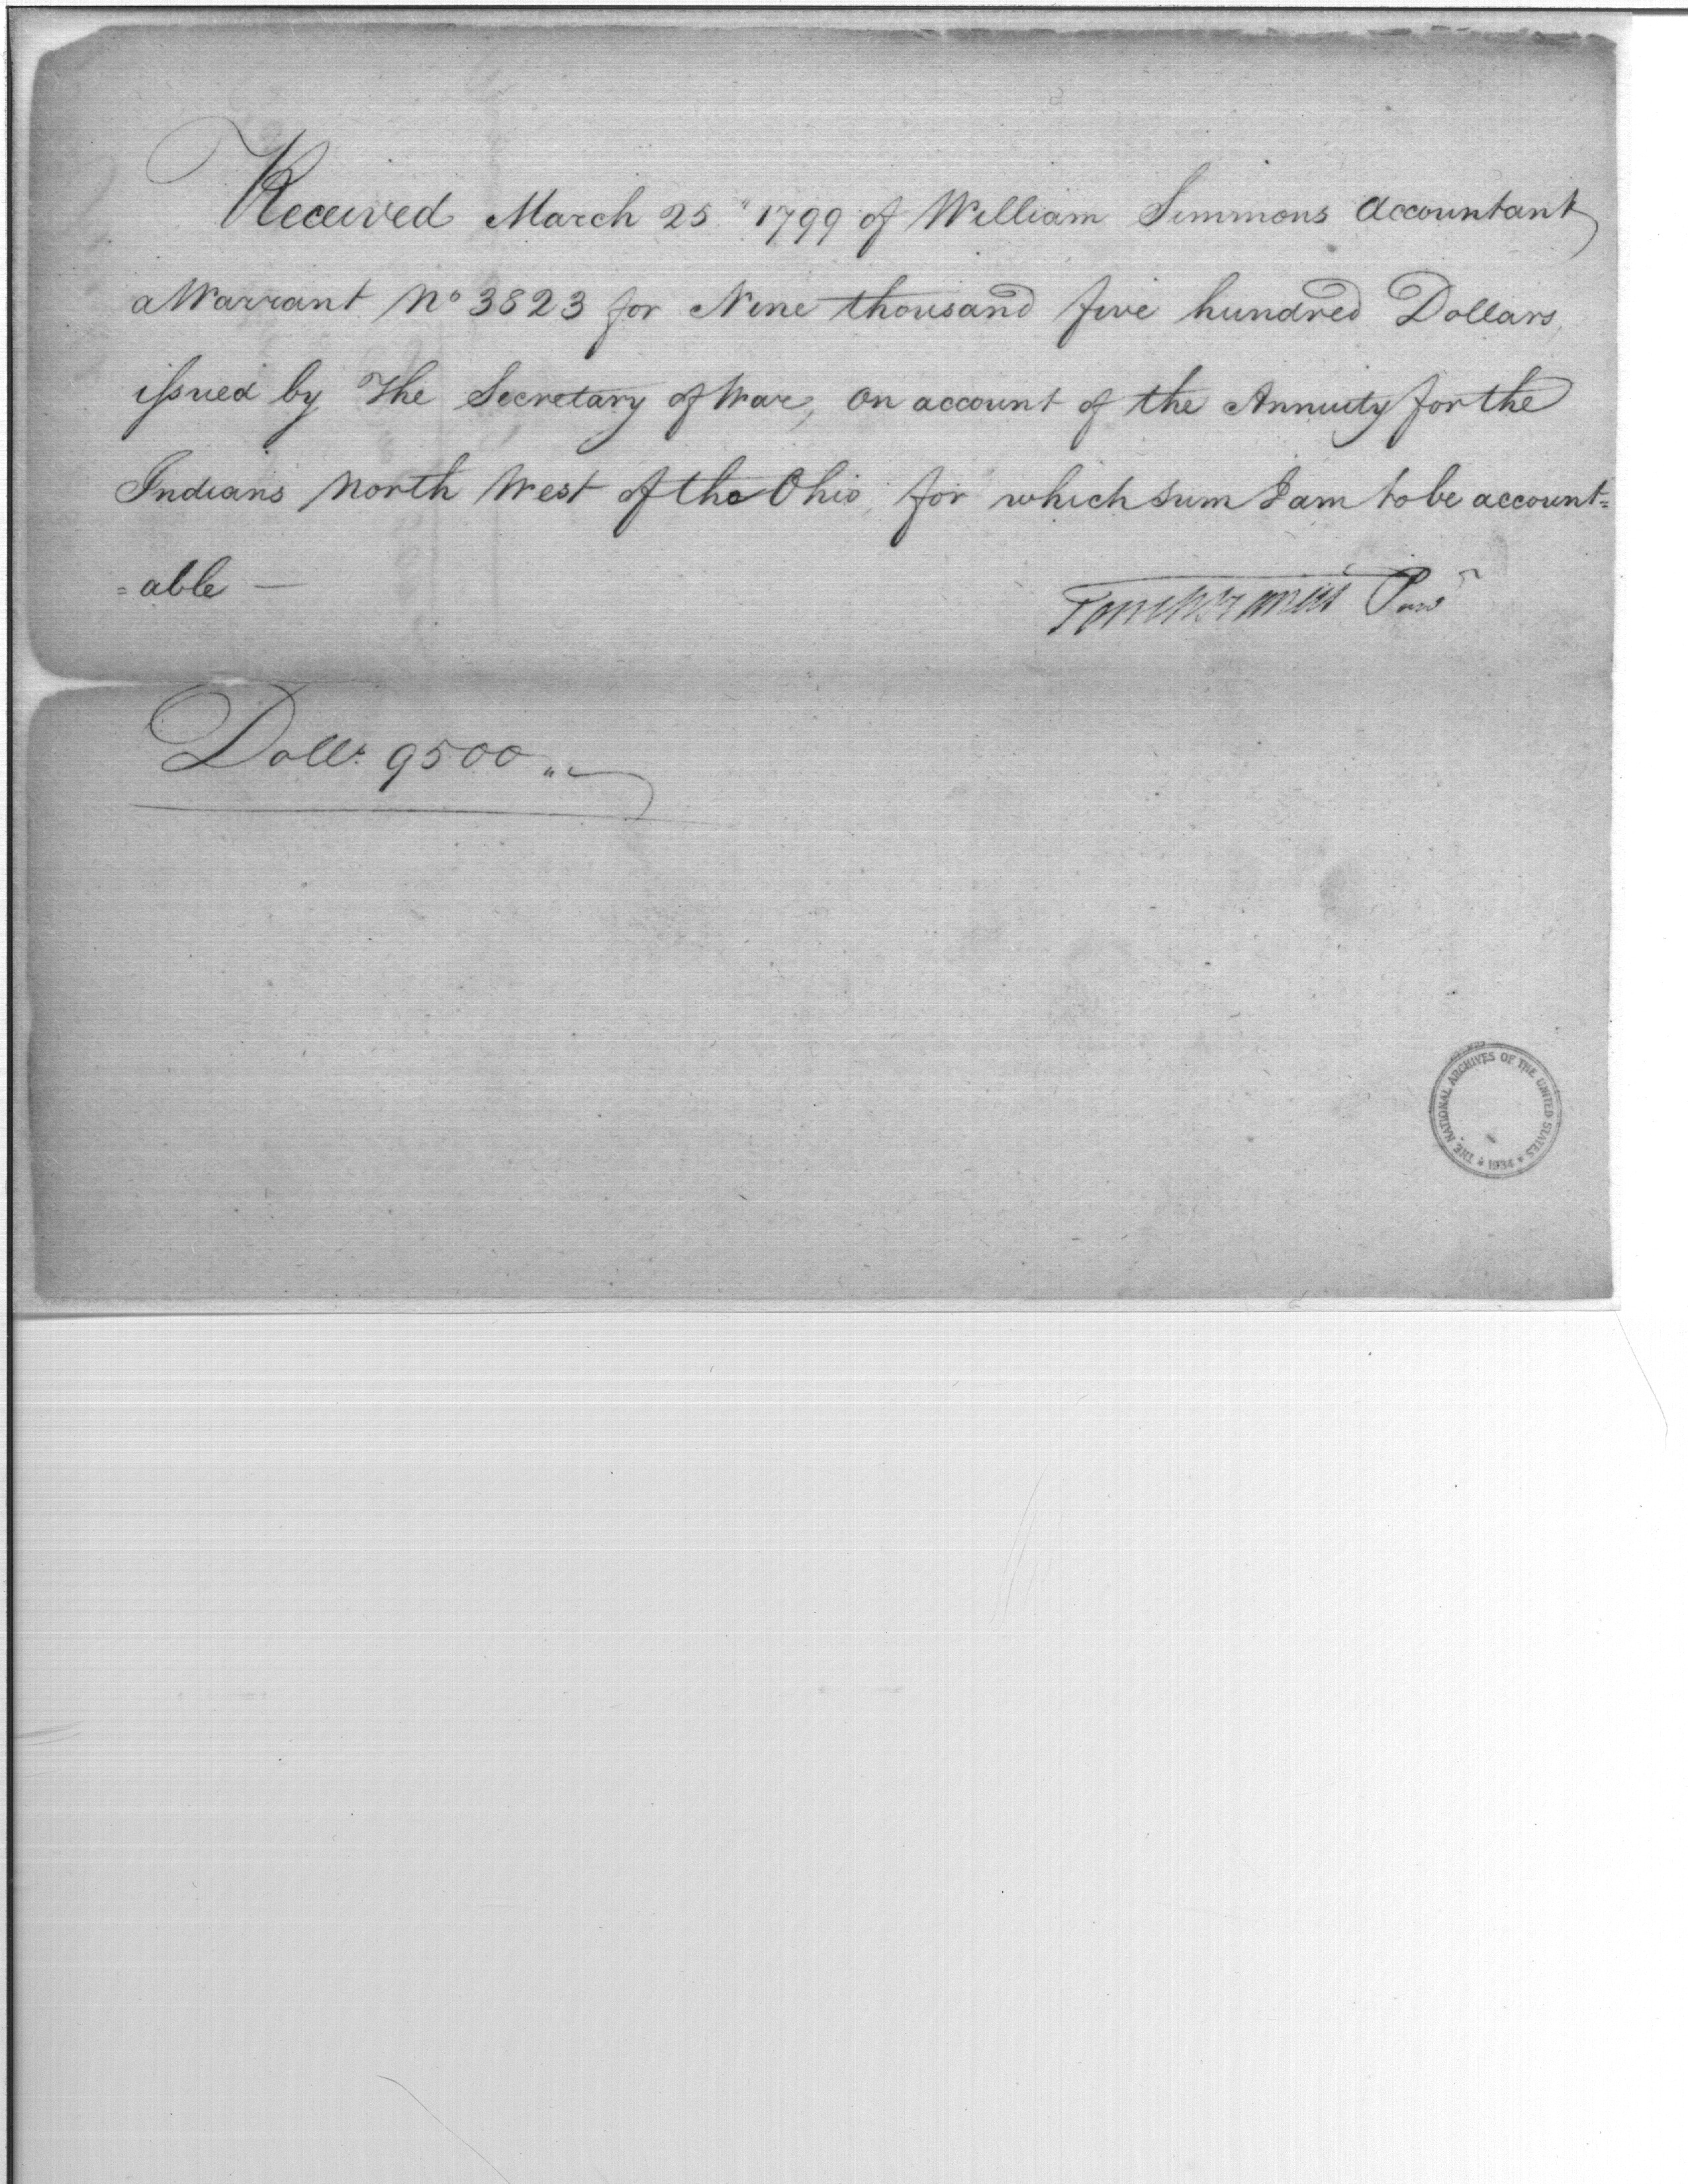 Received March 25" 1799 of William Simmons Accountant
a Warrant No 3823 for Nine thousand five hundred Dollars,
issued by The Secretary of War, on account of the Annuity for the
Indians North West of the Ohio, for which sum I am to be account=
=able —
Tench Francis Purv
Dolls. 9500 "
THE NATIONAL ARCHIVES OF THE UNITED STATES * 1934 *